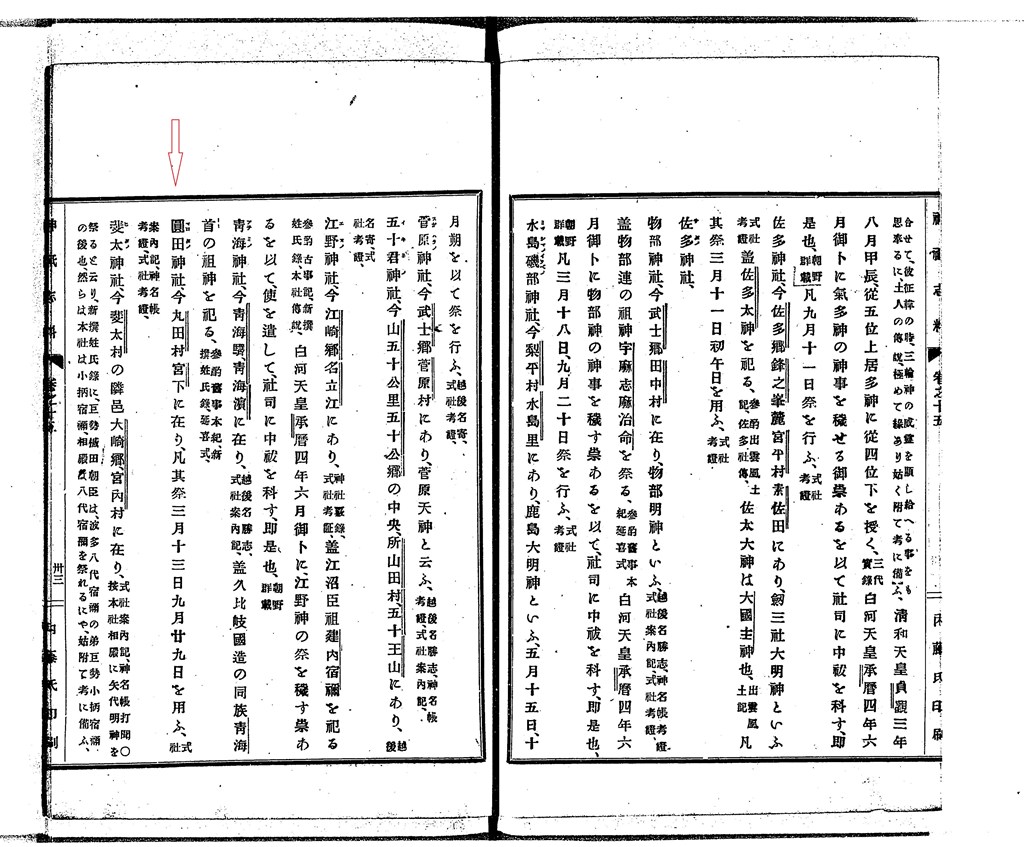 合せて、彼征韓の時、三輪神の威靈を顯し給へる事をも
思奉るに、土人の傳說、極めて緣あり姑く附て考に備ふ、淸和天皇貞觀三年
八月甲辰、從五位上居多神に從四位下を授く、三代實錄白河天皇承曆四年六
月御卜に氣多神の神事を穢せる御祟あるを以て社司に中祓を科す、即
是也、朝野群載凡九月十一日祭を行ふ、式社考證
佐多神社、今佐多鄕鋒之峯麓宮平村素佐田にあり、劒三社大明神といふ
式社考證蓋佐多太神を祀る、參酌出雲風土記、佐多社傳、佐太大神は大國主神也、出雲風土記凡
其祭三月十一日初午日を用ふ、式社考證
佐多神社、
物部神社、今武士鄕田中村に在り、物部明神といふ、越後名勝志、神名帳考證、式社案內記、式社考證、
蓋物部連の祖神宇麻志麻治命を祭る、參酌舊事本紀延喜式白河天皇承曆四年六
月御卜に物部神の神事を穢す祟あるを以て、社司に中祓を科す、即是也、
朝野群載凡三月十八日、九月二十日祭を行ふ、式社考證
水島磯部神社、今梨平村水島里にあり、鹿島大明神といふ、五月十五日、十
月朔を以て祭を行ふ、越後名寄、式社考證、
菅原神社、今武士鄕菅原村にあり、菅原天神と云ふ、越後名勝志、神名帳考證、式社案內記、
五十君神社、今山五十公里五十公鄕の中央、所山田村、五十王山にあり、越後
名寄、式社考證、
江野神社、今江崎鄕名立江にあり、神社覈錄、式社考證、蓋江沼臣祖建內宿禰を祀る
參酌古事記、新撰姓氏錄、本社傳說、白河天皇承曆四年六月御卜に、江野神の祭を穢す祟あ
るを以て、使を遣して、社司に中祓を科す、即是也、朝野群載
靑海神社、今靑海驛、靑海濱に在り、越後名勝志、式社案內記、蓋久比岐國造の同族靑海
首の祖神を祀る、參酌舊事本紀、新撰姓氏錄、延喜式、
圓田神社、今丸田村宮下に在り、凡其祭三月十三日九月廿九日を用ふ、式社
案內記、神名帳考證、式社考證、
斐太神社、今斐太村の隣邑大崎鄕、宮內村に在り、式社案內記、神名帳打聞〇按本社相殿に矢代明神を
祭ると云り、新撰姓氏錄に、巨勢楲田朝臣は、波多八代宿禰の弟巨勢小柄宿禰
の後也、然らは本社は小柄宿禰、相殿は八代宿禰を祭れるにや、姑附て考に備ふ、
卅三